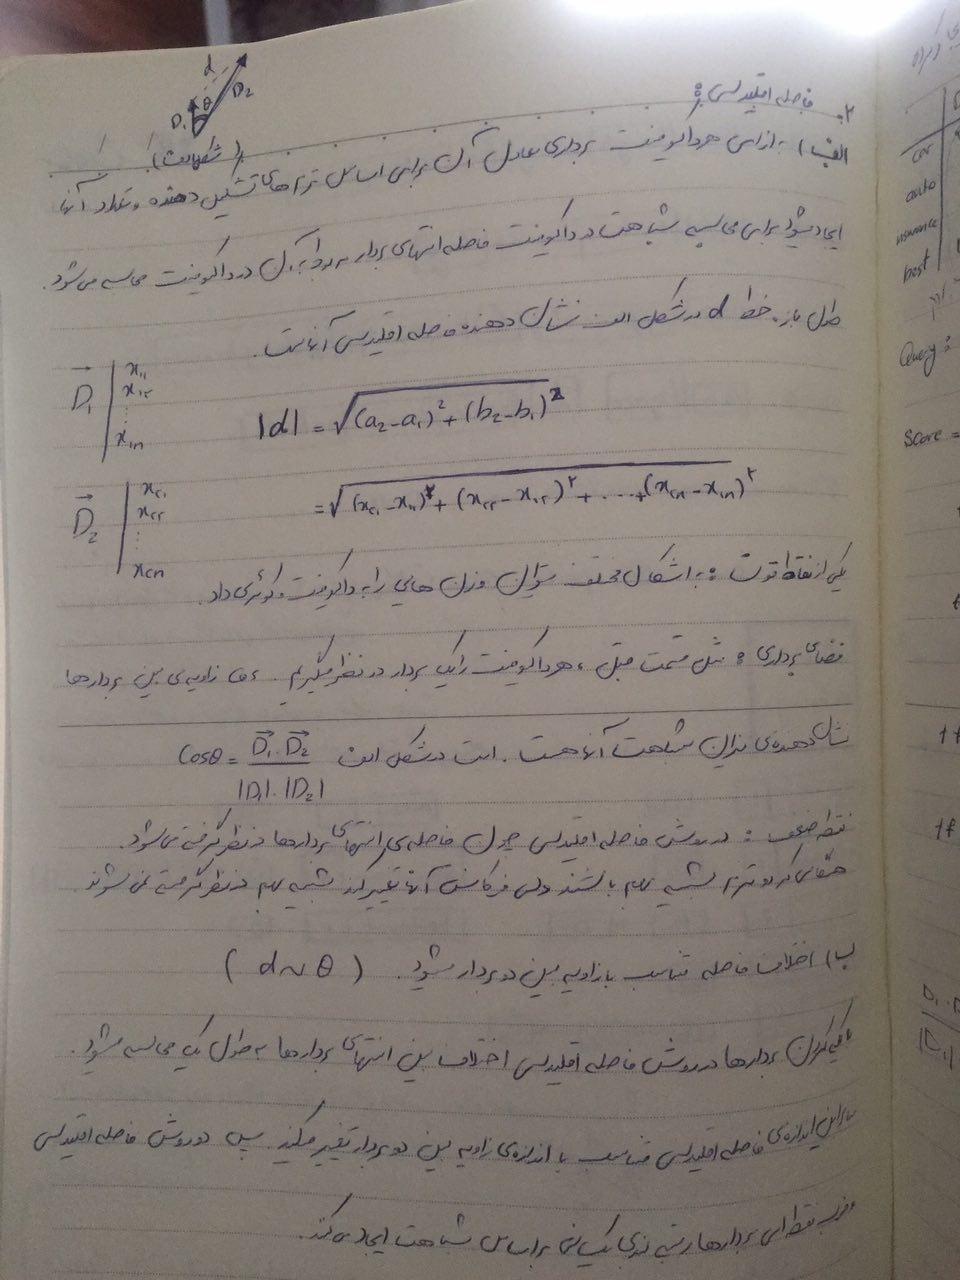 ۲. فاصله اقلیدسی :
d
D₁ θ D₂
(شکل الف)
الف) به ازای هر داکیومنت برداری معادل آن برای اساس ترم های تشکیل دهنده و تعداد آنها
ایجاد میشود برای محاسبه شباهت دو داکیومنت فاصله انتهای بردار مربوط به آن دو داکیومنت محاسبه می شود.
طول پاره خط d در شکل الف نشان دهنده فاصله اقلیدسی آنهاست.
D₁ | x₁₁ x₁₂ ⋮ x₁n
|d| = √(a₂-a₁)² + (b₂-b₁)²
D₂ | x₂₁ x₂₂ ⋮ x₂n
= √(x₂₁-x₁₁)² + (x₂₂-x₁₂)² + ... + (x₂n-x₁n)²
یکی از نقاط قوت : به اشکال مختلف میتوان وزن هایی را به داکیومنت و کوئری داد.
فضای برداری : مثل قسمت قبل ، هر داکیومنت را یک بردار در نظر میگیریم. زاویه ی بین بردارها
نشان دهنده ی میزان شباهت آنها هست. در شکل الف Cosθ = D₁.D₂ / |D₁|.|D₂|
نقطه ضعف : در روش فاصله اقلیدسی چون فاصله ی انتهای بردارها در نظر گرفته می شود.
هنگامی که دو ترم شبیه بهم باشند ولی فرکانس آنها تغییر کند شبیه بهم در نظر گرفته نمی شوند
ب) اختلاف فاصله متناسب با زاویه بین دو بردار میشود. (d ~ θ)
با یکه کردن بردارها در روش فاصله اقلیدسی اختلاف بین انتهای بردارها به طول یک محاسبه میشود.
بنابراین اندازه ی فاصله اقلیدسی متناسب با اندازه ی زاویه بین دو بردار تغییر میکند. پس دو روش فاصله اقلیدسی
و ضرب نقطه ای بردارها رتبه بندی یکسانی بر اساس شباهت ایجاد می کند.
car
auto
insurance
best
Query :
Score =